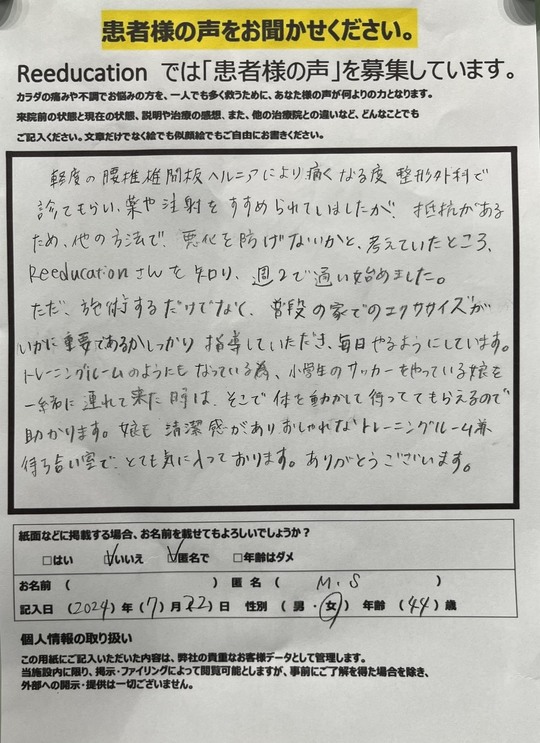 患者様の声をお聞かせください。
Reeducation では「患者様の声」を募集しています。
カラダの痛みや不調でお悩みの方を、一人でも多く救うために、あなた様の声が何よりの力となります。
来院前の状態と現在の状態、説明や治療の感想、また、他の治療院との違いなど、どんなことでも
ご記入ください。文章だけでなく絵でも似顔絵でもご自由にお書きください。
軽度の腰椎椎間板ヘルニアにより痛くなる度 整形外科で
診てもらい、薬や注射をすすめられていましたが、抵抗がある
ため、他の方法で、悪化を防げないかと、考えていたところ、
Reeducationさんを知り、週2で通い始めました。
ただ、施術するだけでなく、普段の家でのエクササイズが
いかに重要であるかしっかり指導していただき、毎日やるようにしています。
トレーニングルームのようにもなっている為、小学生のサッカーをやっている娘を
一緒に連れて来た時は、そこで体を動かして待っててもらえるので
助かります。娘も清潔感がありおしゃれなトレーニングルーム兼
待ち合い室で、とても気に入っております。ありがとうございます。
紙面などに掲載する場合、お名前を載せてもよろしいでしょうか？
□はい ☑いいえ ☑匿名で □年齢はダメ
お名前 （ ） 匿名（ M.S ）
記入日（2024）年（7）月22）日 性別（男・女）年齢（44）歳
個人情報の取り扱い
この用紙にご記入いただいた内容は、弊社の貴重なお客様データとして管理します。
当施設内に限り、掲示・ファイリングによって閲覧可能としますが、事前にご了解を得た場合を除き、
外部への開示・提供は一切ございません。